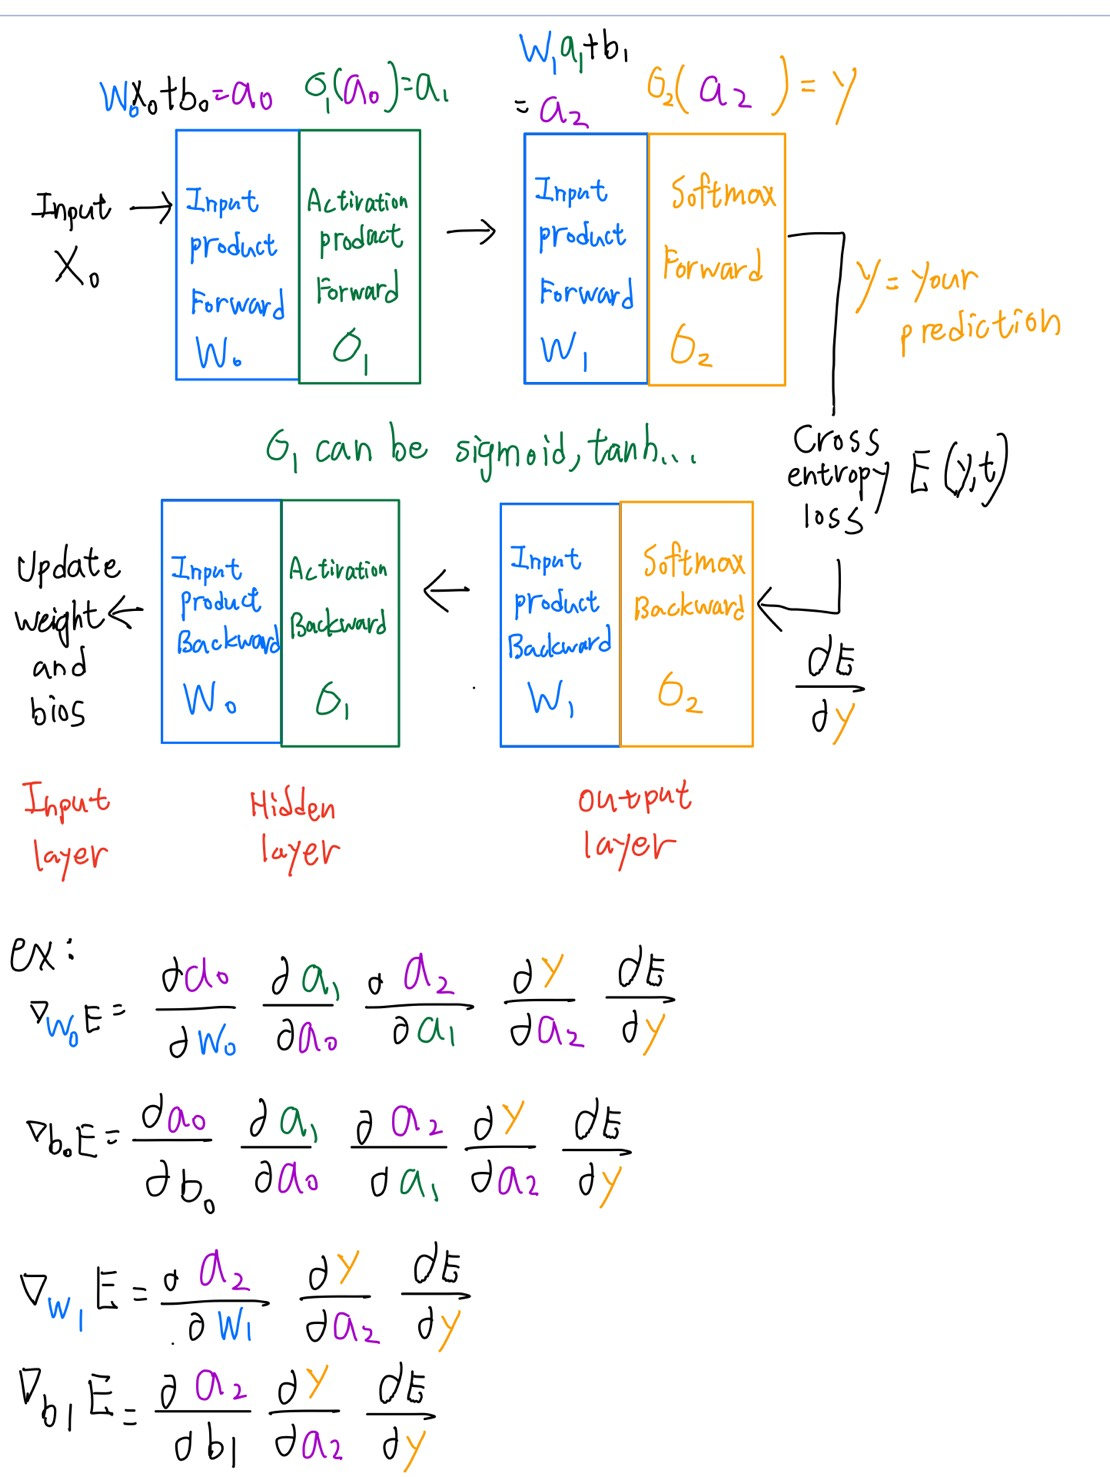 W₀x₀+b₀=a₀
σ₁(a₀)=a₁
W₁a₁+b₁
=a₂
σ₂(a₂)=y
Input
X₀
Input
product
Forward
W₀
Activation
product
Forward
σ₁
Input
product
Forward
W₁
Softmax
Forward
σ₂
y=your
prediction
σ₁ can be sigmoid, tanh...
Cross
entropy E(y,t)
loss
Update
weight
and
bios
Input
Product
Backward
W₀
Activation
Backward
σ₁
Input
product
Backward
W₁
Softmax
Backward
σ₂
∂E
∂y
Input
layer
Hidden
layer
Output
layer
ex:
∇W₀E = ∂a₀/∂W₀ ∂a₁/∂a₀ ∂a₂/∂a₁ ∂y/∂a₂ ∂E/∂y
∇b₀E = ∂a₀/∂b₀ ∂a₁/∂a₀ ∂a₂/∂a₁ ∂y/∂a₂ ∂E/∂y
∇W₁E = ∂a₂/∂W₁ ∂y/∂a₂ ∂E/∂y
∇b₁E = ∂a₂/∂b₁ ∂y/∂a₂ ∂E/∂y